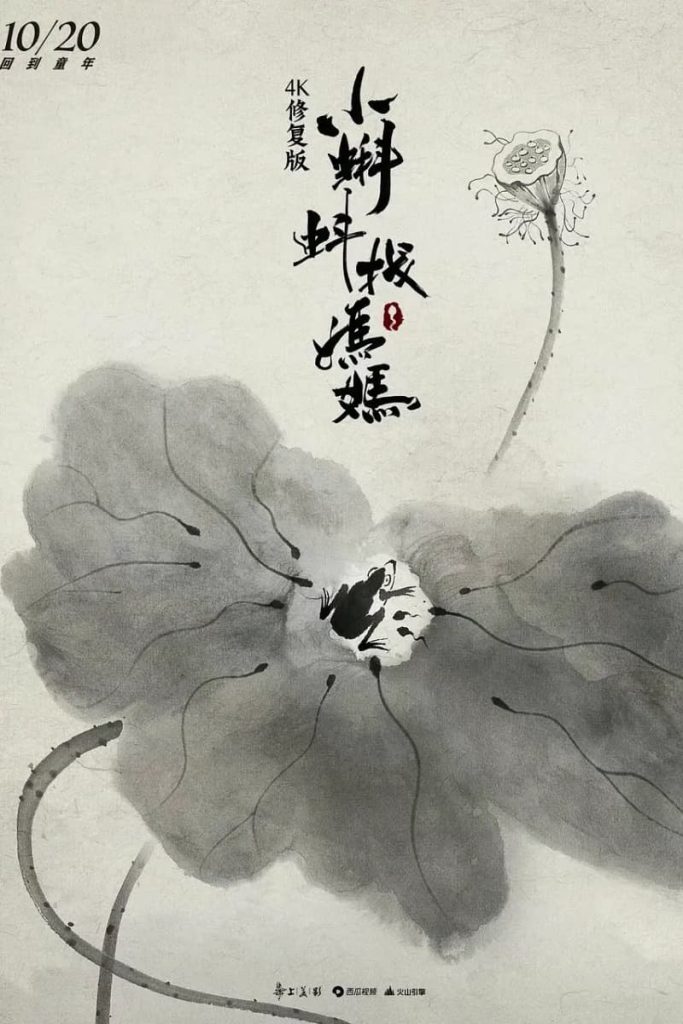 10/20
回到童年
4K修复版
小蝌蚪找媽媽
上|美|影
西瓜视频
火山引擎